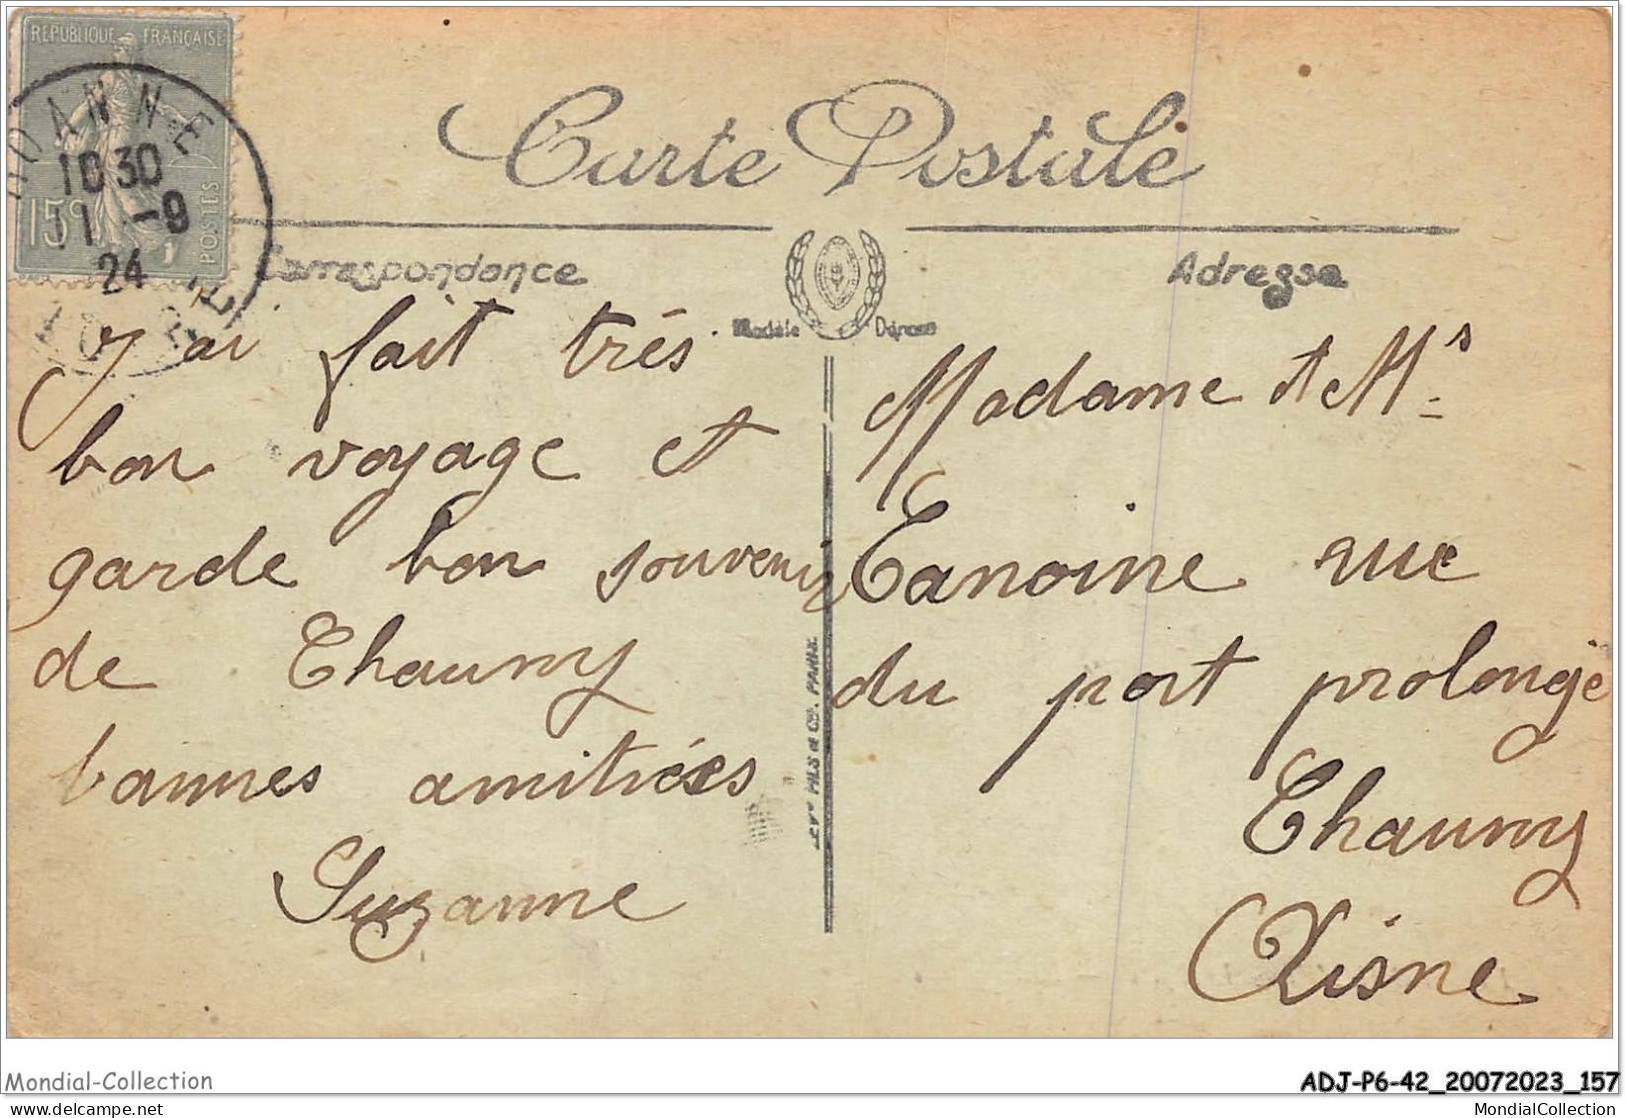 REPUBLIQUE FRANÇAISE
15c
POSTES
ROANNE
10 30
11 -9
24
LOIRE
Carte Postale
Correspondance
Adresse
Modèle Déposé
j'ai fait très
bon voyage et
garde bon souvenir
de Chauny
bonnes amitiées
Suzanne
LEVY FILS & Cie. PARIS
Madame et Mr
Canoine rue
du port prolongé
Chauny
Aisne
Mondial-Collection
ADJ-P6-42_20072023_157
delcampe.net
MondialCollection